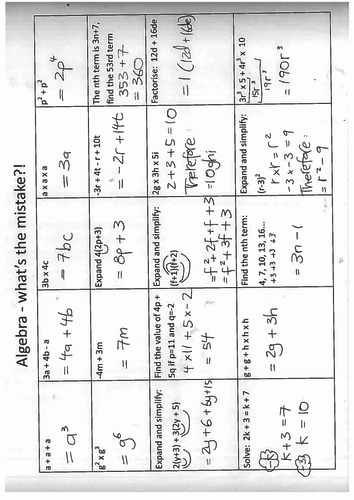 Algebra - what's the mistake?!
a + a + a
= a³
3a + 4b - a
= 4a + 4b
3b x 4c
= 7bc
a x a x a
= 3a
p² + p²
= 2p⁴
g² x g³
= g⁶
-4m + 3m
= 7m
Expand 4(2p+3)
= 8p + 3
-3r + 4t - r + 10t
= -2r + 14t
The nth term is 3n+7,
find the 53rd term
353 + 7
= 360
Expand and simplify:
2(y+3) + 3(2y + 5)
= 2y + 6 + 6y + 15
Find the value of 4p +
5q if p=11 and q=-2
4 x 11 + 5 x -2
= 54
Expand and simplify:
(f+1)(f+2)
= f² + 2f + f + 3
= f² + 3f + 3
2g x 3h x 5i
2 + 3 + 5 = 10
Therefore:
= 10ghi
Factorise: 12d + 16de
= 1(12d + 16de)
Solve: 2k + 3 = k + 7
-k
k + 3 = 7
-3 k = 10
g + g + h x h x h
= 2g + 3h
Find the nth term:
4, 7, 10, 13, 16...
+3 +3 +3 +3
= 3n - 1
Expand and simplify:
(r-3)²
r x r = r²
-3 x -3 = 9
Therefore:
= r² - 9
3r³ x 5 + 4r³ x 10
15r³
19r³
= 190r³